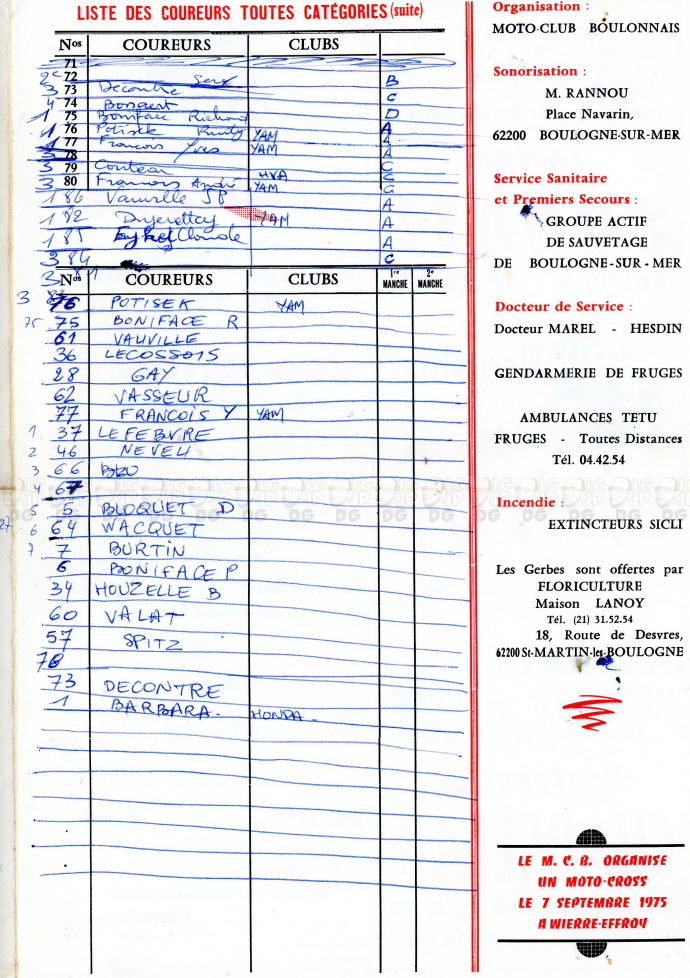 LISTE DES COUREURS TOUTES CATÉGORIES (suite)
Nos COUREURS CLUBS
71
72 B
3 73 Decontre C
4 74 Bonaert
1 75 Boniface Richard D
1 76 Potisek YAM A
1 77 Francois Yves YAM A
3 78 A
3 79 Couteau HVA C
3 80 Francois André YAM
1 86 Vauville JP A
1 82 YAM A
1 85 Claude A
3 84 C
3 81
Nos COUREURS CLUBS 1re MANCHE 2e MANCHE
3 76 POTISEK YAM
75 75 BONIFACE R
61 VAUVILLE
36 LECOSSOIS
28 GAY
62 VASSEUR
77 FRANCOIS Y YAM
1 37 LEFEBVRE
2 46 NEVEU
3 66
4 67
5 5 BLOQUET D
27 6 64 WACQUET
7 7 BURTIN
6 BONIFACE P
34 HOUZELLE B
60 VALAT
57 SPITZ
78
73 DECONTRE
1 BARBARA - HONDA -
Organisation :
MOTO-CLUB BOULONNAIS
Sonorisation :
M. RANNOU
Place Navarin,
62200 BOULOGNE-SUR-MER
Service Sanitaire
et Premiers Secours :
GROUPE ACTIF
DE SAUVETAGE
DE BOULOGNE-SUR-MER
Docteur de Service :
Docteur MAREL - HESDIN
GENDARMERIE DE FRUGES
AMBULANCES TETU
FRUGES - Toutes Distances
Tél. 04.42.54
Incendie :
EXTINCTEURS SICLI
Les Gerbes sont offertes par
FLORICULTURE
Maison LANOY
Tél. (21) 31.52.54
18, Route de Desvres,
62200 St-MARTIN-les-BOULOGNE
LE M. C. B. ORGANISE
UN MOTO-CROSS
LE 7 SEPTEMBRE 1975
A WIERRE-EFFROY